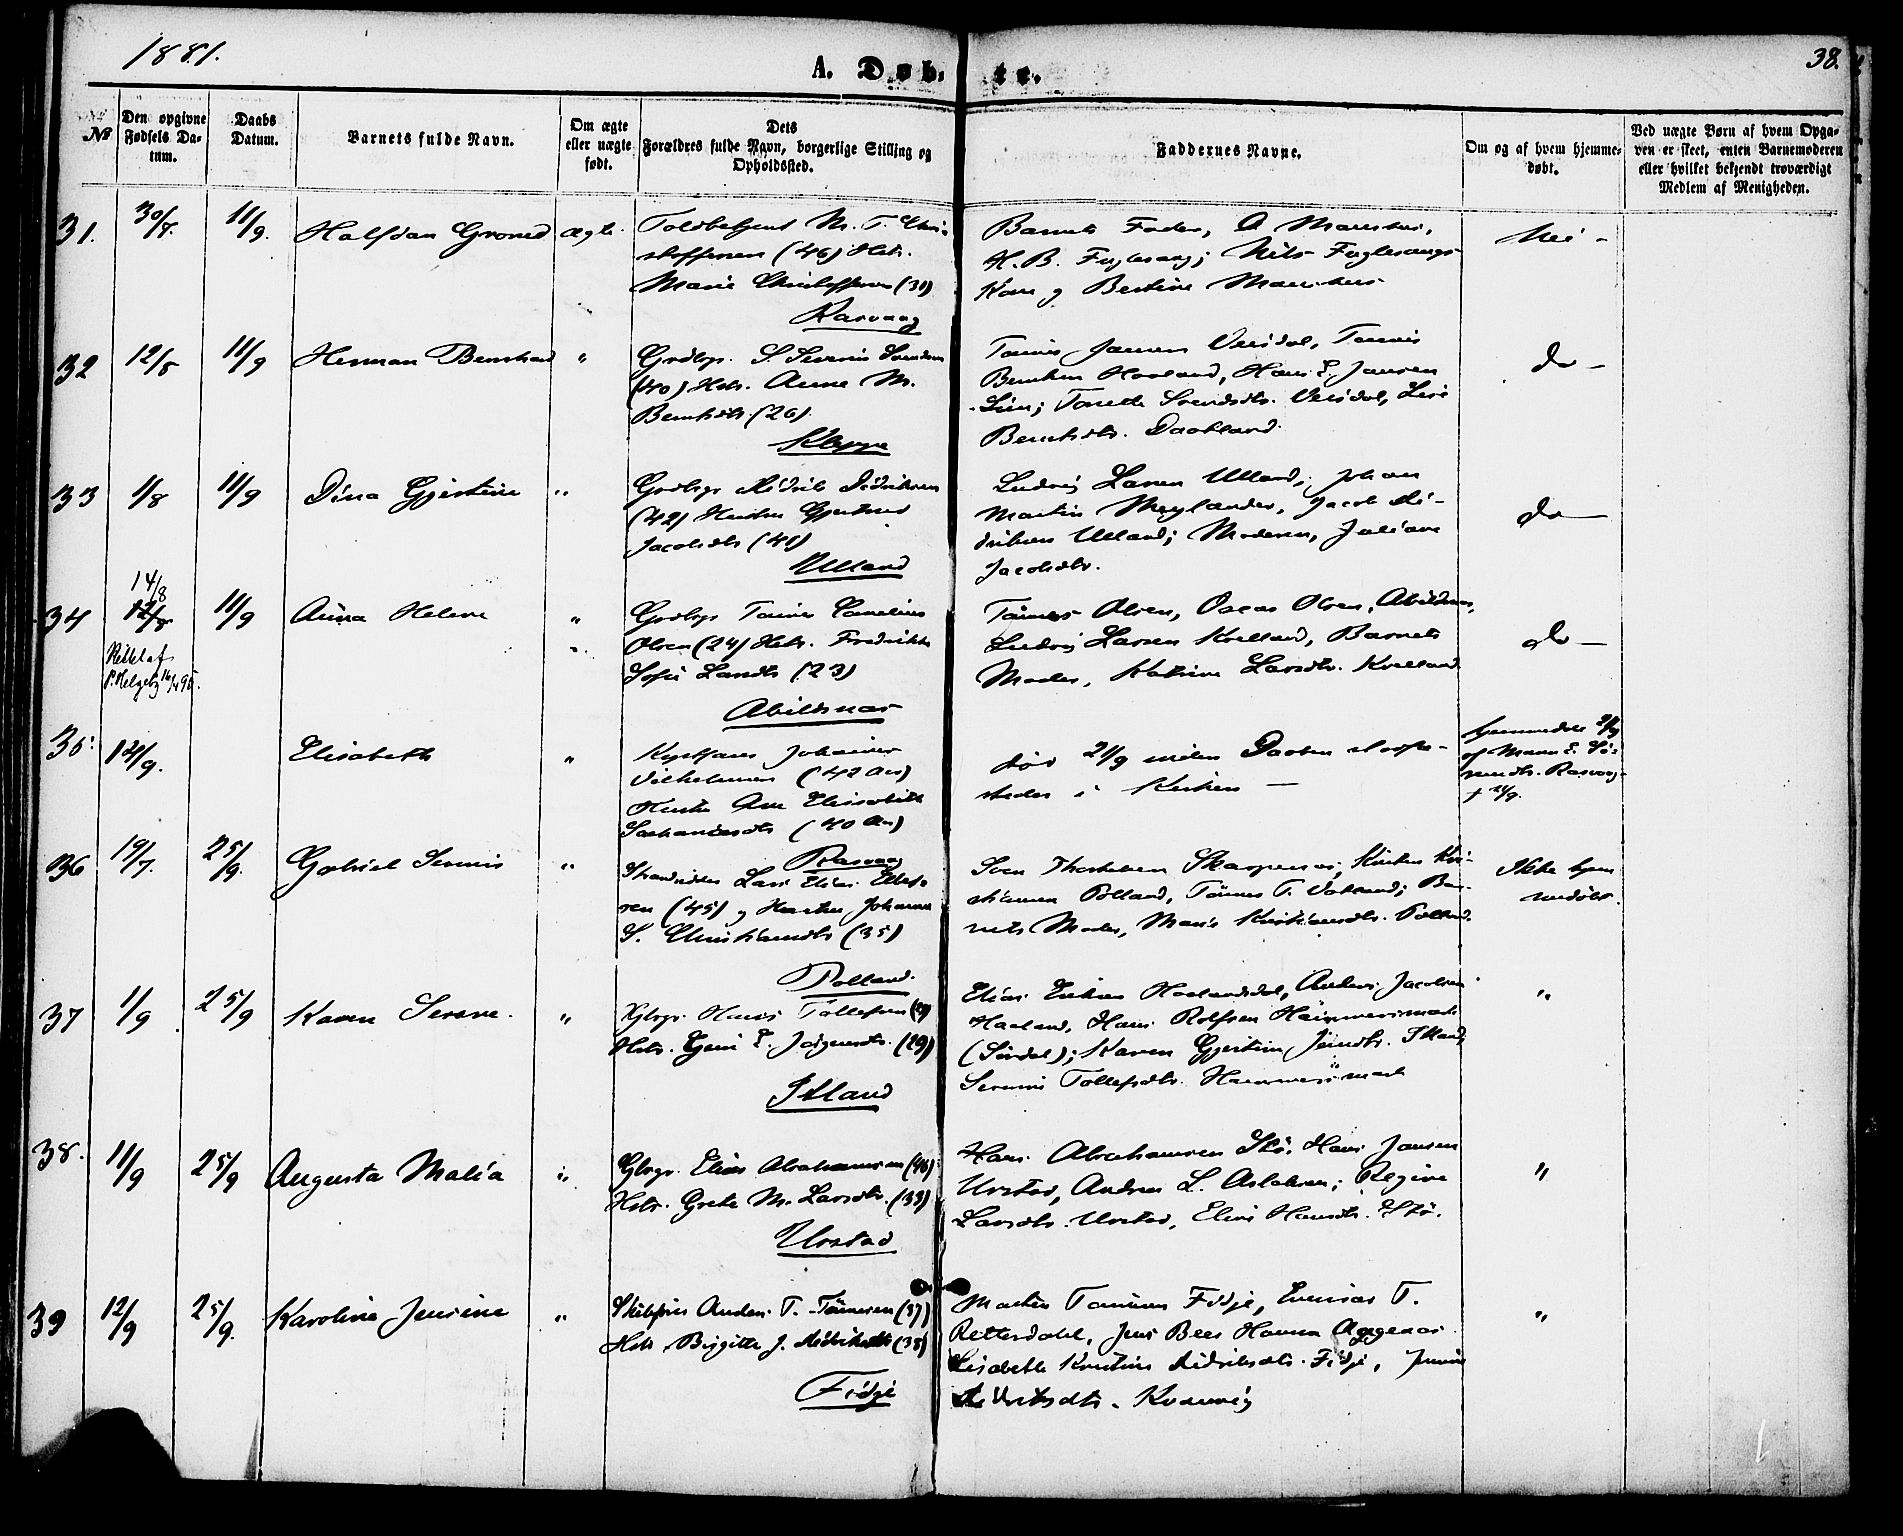 1881.
A. Døb- te.
38.
No
Den opgivne Fødsels Da-tum.
Daabs Datum.
Barnets fulde Navn.
Om ægte eller uægte født.
Dets Forældres fulde Navn, borgerlige Stilling og Opholdssted.
Faddernes Navne.
Om og af hvem hjemme-døbt.
Ved uægte Børn af hvem Opga-ven er skeet, enten Barnemoderen eller hvilket bekjendt troværdigt Medlem af Menigheden.
31. 30/7. 11/9. Halfdan Groned ægte.
Toldbetjent M. T. Chri-
stoffersen (46) Hstr.
Marie Christoffersen (30)
Rasvaag
Barnets Fader,
H. B. Fuglesang; Nils Fuglesangs
Kone og Bertine
Nei -
32 12/8 11/9 Herman Bernhard "
Grdbrgr. S. Severin Svendsen
(40) Hstr. Anne M.
Berntsdtr. (26).
Kleppe
Tønnes Jansen Versdal, Tønnes
Berntsen Haaland, Hans E. Jansen
Lien; Tonette Svendsdtr. Versdal, Lise
Berntsdtr. Daatland.
do -
33 1/8 11/9 Dina Gjertine "
Grdbrgr Didrik Didriksen
(42) Hustru Gjertine
Jacobsdtr (41)
Ulland
Ludvig Larsen Ulland, Johan
Martin Meylander, Jacob Di-
driksen Ulland; Moderen, Juliane
Jacobsdtr.
do -
14/8
34 12/8 11/9 Anna Helene "
Rettet af
P. Helgeby
Grdbrgr Tønnes Cornelius
Olsen (24) Hstr. Fredrikke
Sofie Larsdtr (23)
Abildsnæs
Tønnes Olsen, Oscar Olsen, Abildsnæs,
Ludvig Larsen Kvelland, Barnets
Moder, Katrine Larsdtr. Kvelland
do -
35. 12/9. Elisabeth "
Johannes
Vilhelmsen (42 Aar)
Hustru Ane Elisabeth
Zachariasdtr (40 Aar)
Rasvaag
død 21/9 inden Daaben stadfæ-
stedes i Kirken -
hjemmedøbt 21/9
af Maren E. Sø-
rensdtr. Rasvaag
† 21/9.
36 19/7. 25/9. Gabriel Severin "
Strandsidder Lars Elias Ellef-
sen (45) og Hustru Johanne
S. Christiansdtr (35)
Polland.
Sven Thorkelsen Skarpenes, Kristen Kri-
stiansen Polland, Tønnes T. Vatland; Bar-
nets Moder, Marie Kristiansdtr. Polland.
Ikke hjem
medøbt.
37 1/9 25/9 Karen Severe. "
Gbrgr. Hans Tollefsen (29)
Hstr. Gjeni E. Jørgensdtr. (29)
Itland
Elias Eriksen Haalandsdal, Anders Jacobsen
Haaland, Hans Rolfsen Hammersmark
(Sirdal); Karen Gjertine Jensdtr. Itland,
Serine Tollefsdtr. Hammersmark
"
38. 11/9 25/9 Augusta Malia "
Gbrgr. Elias Abrahamsen (46)
Hstr. Grete M. Larsdtr. (33)
Urstad
Hans Abrahamsen Stø, Hans Jansen
Urstad, Andreas L. Aslaksen; Regine
Larsdtr. Urstad, Elen Hansdtr. Stø.
"
39 12/9 25/9. Karoline Jensine "
Skibsfører Anders T. Tønnesen (37)
Hstr. Birgitte J. Didriksdtr (35)
Fidje
Martin Tønnesen Fidje, Enevias T.
Rettersdahl, Jens Beer Hansen Aggenæs
Lisabeth Kristine Didriksdtr. Fidje,
Didriksdtr. Kvanvig